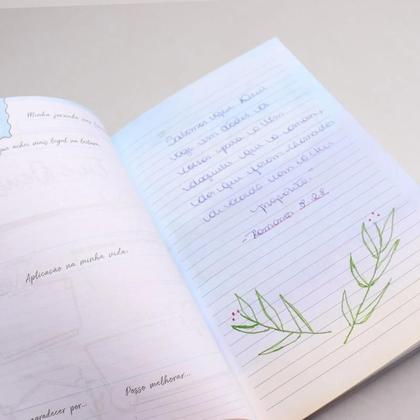 Minha jornada
achei mais legal na leitura
Aplicação na minha vida:
Posso melhorar...
agradecer por...
Sabemos que Deus
age em todas as
coisas para o bem
daqueles que o amam,
dos que foram chamados
de acordo com o seu
propósito."
- Romanos 8:28